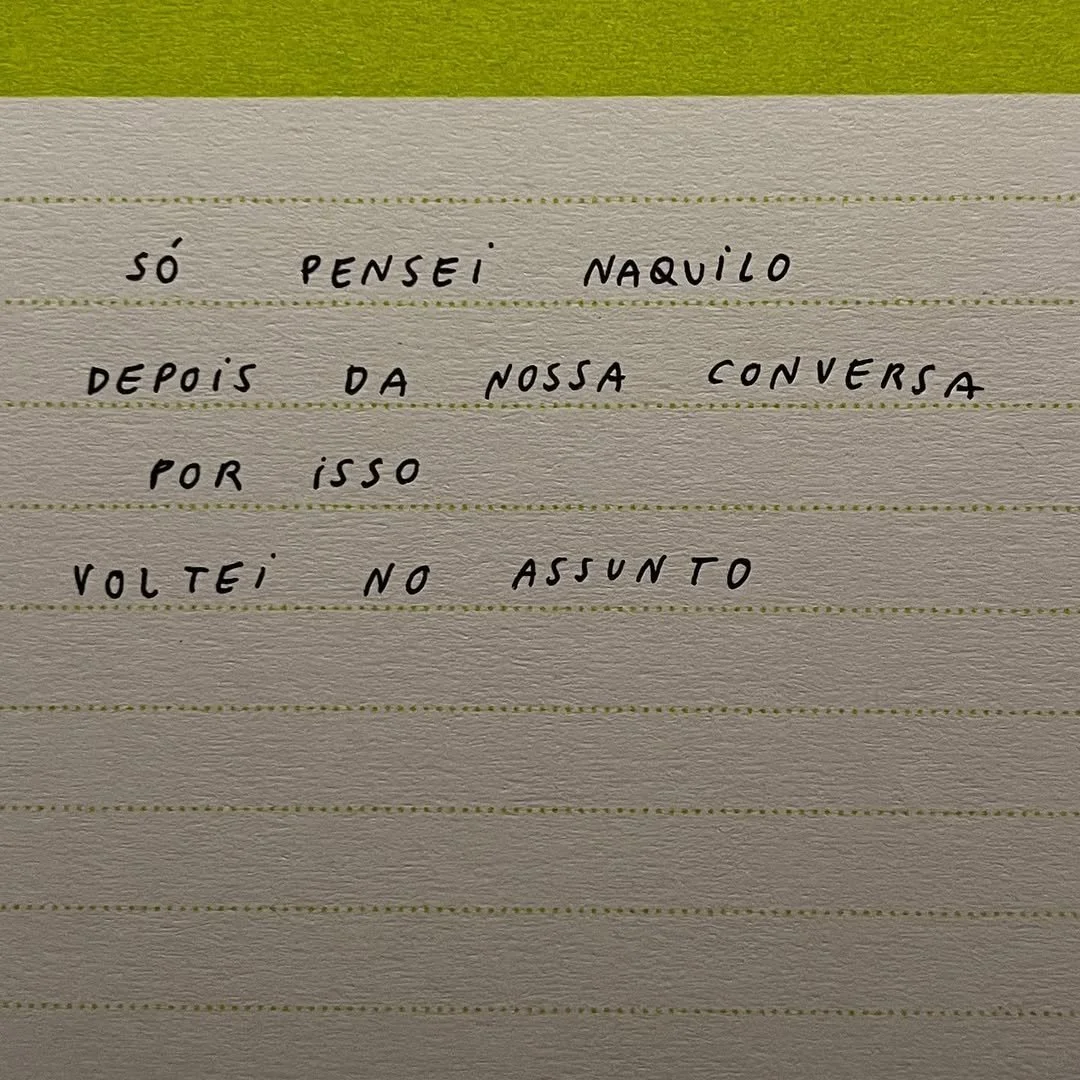 SÓ PENSEI NAQUILO
DEPOIS DA NOSSA CONVERSA
POR ISSO
VOLTEI NO ASSUNTO